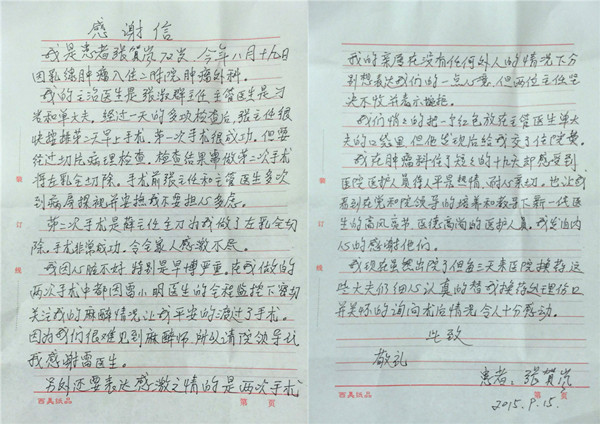 感谢信
我是患者张贺岚70岁，今年八月十九日
因乳腺肿瘤入住二附院肿瘤外科。
我的主治医生是张淑群主任主管医生是刁
岩和单大夫。经过一天的多项检查后，张主任很
快安排第二天早上手术，第一次手术很成功。但要
经过切片病理检查。检查结果需做第二次手术
将左乳全切除。手术前张主任和主管医生多次
到病房探视并安抚不要担心多虑。
第二次手术是薛主任主刀为我做了左乳全切
除。手术非常成功。令家人感激不尽。
我因心脏不好特别是早搏严重，在我做的
两次手术中都因雷小明医生的全程监控下密切
关注我的麻醉情况让我平安的渡过了手术。
因为我们很难见到麻醉师，所以请院领导代
我感谢雷医生。
另外还要表达感激之情的是两次手术
我的亲属在没有任何外人的情况下分
别想表达我们的一点心意，但两位主任坚
决不收并表示拒绝。
我们悄悄的把一个红包放张主管医生单大
夫的口袋里但他发现后给我交了住院费。
我在肿瘤科住了短短的十九天却感受到
医院医护人员待人平易热情、耐心亲切。也让我
看到在党和院领导的培养和教导下新一代医
生的高风亮节、医德高尚的医护人员。我发自内
心的感谢他们。
我现在虽然出院了但每三天来医院换药这
些大夫们细心认真的替我换药处理伤口
并关怀的询问术后情况令人十分感动。
此致
敬礼
患者：张贺岚
2015.9.15.
西美纸品
第 页
第 页
西美纸品
装
订
线
装
订
线